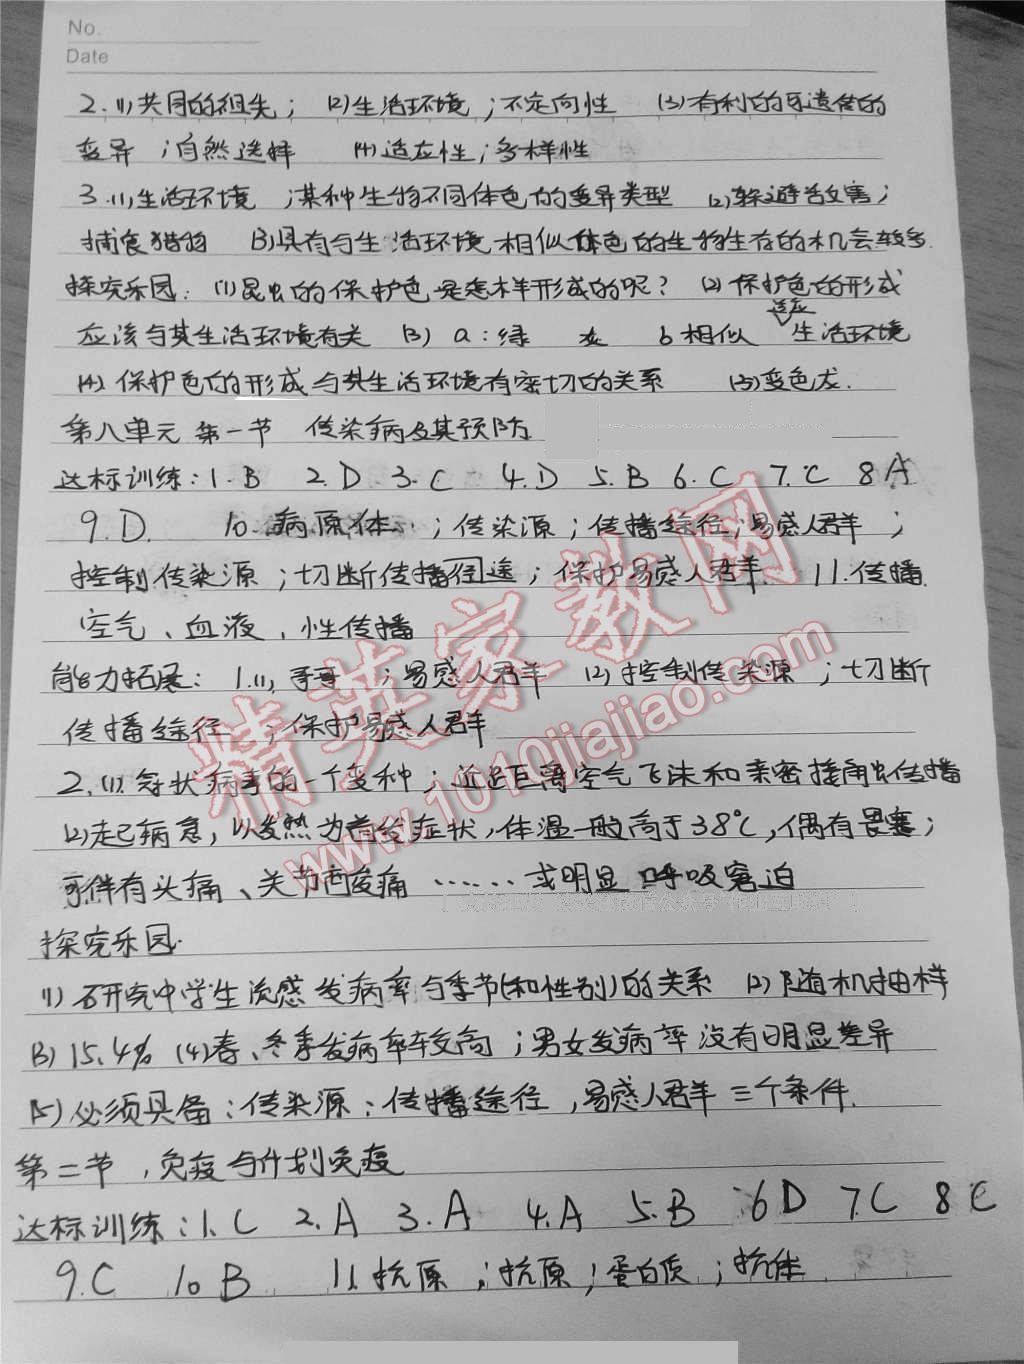 No.
Date
2.(1)共同的祖先；(2)生活环境；不定向性 (3)有利的可遗传的
变异；自然选择 (4)适应性；多样性
3.(1)生活环境；某种生物不同体色的变异类型 (2)躲避敌害；
捕食猎物 (3)具有与生活环境相似体色的生物生存的机会较多.
探究乐园：(1)昆虫的保护色是怎样形成的呢？(2)保护色的形成
应该与其生活环境有关 (3) a：绿 灰 b 相似 适应 生活环境
(4)保护色的形成与其生活环境有密切的关系 (5)变色龙.
第八单元 第一节 传染病及其预防
达标训练：1.B 2.D 3.C 4.D 5.B 6.C 7.C 8 A
9.D. 10.病原体；传染源；传播途径；易感人群；
控制传染源；切断传播途径；保护易感人群. 11.传播.
空气、血液、性传播
能力拓展：1.(1)哥哥；易感人群 (2)控制传染源；切断
传播途径；保护易感人群
2.(1)冠状病毒的一个变种；近距离空气飞沫和亲密接触传播
(2)起病急，以发热为首发症状，体温一般高于38℃，偶有畏寒；
可伴有头痛、关节酸痛……或明显呼吸窘迫
探究乐园.
(1)研究中学生流感发病率与季节(和性别)的关系 (2)随机抽样
(3)15.4% (4)春、冬季发病率较高；男女发病率没有明显差异
(5)必须具备：传染源；传播途径，易感人群三个条件.
第二节，免疫与计划免疫
达标训练：1.C 2.A 3.A 4.A 5.B 6D 7.C 8 C
9.C 10 B 11.抗原；抗原；蛋白质；抗体
精英家教网
www.1010jiajiao.com